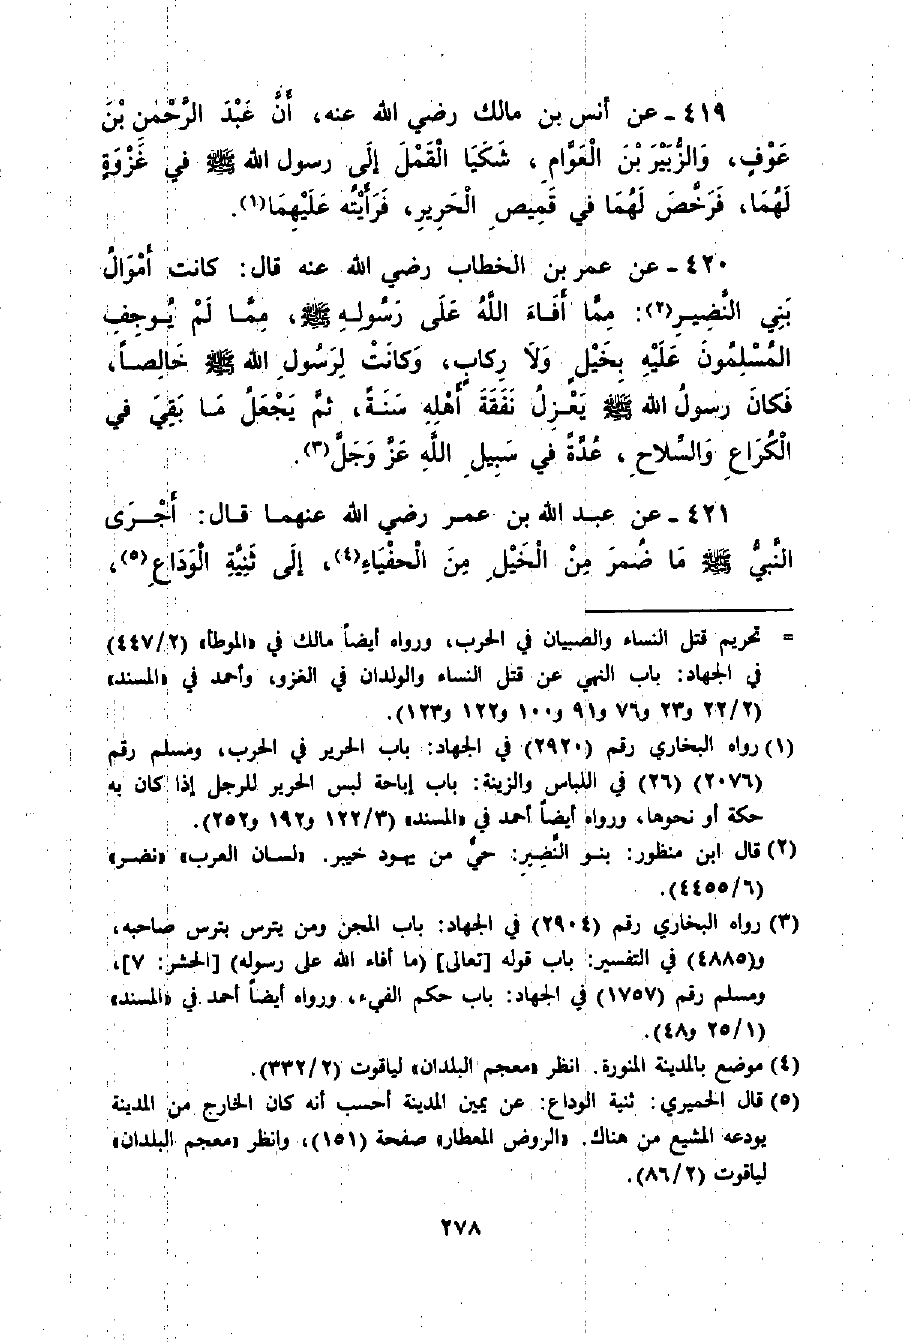 ٤١٩ - عن أنس بن مالك رضي الله عنه، أَنَّ عَبْدَ الرَّحْمٰنِ بْنَ
عَوْفٍ، وَالزُّبَيْرَ بْنَ الْعَوَّامِ، شَكَيَا الْقَمْلَ إِلَى رسول الله ﷺ في غَزْوَةٍ
لَهُمَا، فَرَخَّصَ لَهُمَا في قَمِيصِ الْحَرِيرِ، فَرَأَيْتُه عَلَيْهِمَا(١).
٤٢٠ - عن عمر بن الخطاب رضي الله عنه قال: كانت أَمْوَالُ
بَنِي النَّضِير(٢): مِمَّا أَفَاءَ اللَّهُ عَلَى رَسُولِهِ ﷺ، مِمَّا لَمْ يُوجِفِ
المُسْلِمُونَ عَلَيْهِ بِخَيْلٍ وَلَا رِكابٍ، وَكانَتْ لِرَسُولِ الله ﷺ خَالِصاً،
فَكانَ رسولُ الله ﷺ يَعْزِلُ نَفَقَةَ أَهْلِهِ سَنَةً، ثمَّ يَجْعَلُ مَا بَقِيَ في
الْكُرَاعِ وَالسِّلاحِ، عُدَّةً في سَبِيلِ اللَّهِ عَزَّ وَجَلَّ(٣).
٤٢١ - عن عبد الله بن عمر رضي الله عنهما قال: أَجْرَى
النَّبيُّ ﷺ مَا ضُمرَ مِنْ الْخَيْلِ مِنَ الْحفْيَاءِ(٤)، إِلَى ثَنِيَّةِ الْوَدَاعِ(٥)،
= تحريم قتل النساء والصبيان في الحرب، ورواه أيضاً مالك في «الموطأ» (٤٤٧/٢)
في الجهاد: باب النهي عن قتل النساء والولدان في الغزو، وأحمد في «المسند»
(٢٢/٢ و٢٣ و٧٦ و٩١ و١٠٠ و١٢٢ و١٢٣).
(١) رواه البخاري رقم (٢٩٢٠) في الجهاد: باب الحرير في الحرب، ومسلم رقم
(٢٠٧٦) (٢٦) في اللباس والزينة: باب إباحة لبس الحرير للرجل إذا كان به
حكة أو نحوها، ورواه أيضاً أحمد في «المسند» (١٢٢/٣ و١٩٢ و٢٥٢).
(٢) قال ابن منظور: بنو النَّضِير: حيٌّ من يهود خيبر. «لسان العرب» «نضر»
(٤٤٥٥/٦).
(٣) رواه البخاري رقم (٢٩٠٤) في الجهاد: باب المجن ومن يترس بترس صاحبه،
و(٤٨٨٥) في التفسير: باب قوله [تعالى] (ما أفاء الله على رسوله) [الحشر: ٧]،
ومسلم رقم (١٧٥٧) في الجهاد: باب حكم الفيء، ورواه أيضاً أحمد في «المسند»
(٢٥/١ و٤٨).
(٤) موضع بالمدينة المنورة. انظر «معجم البلدان» لياقوت (٣٣٢/٢).
(٥) قال الحميري: ثنية الوداع: عن يمين المدينة أحسب أنه كان الخارج من المدينة
يودعه المشيع من هناك. «الروض المعطار» صفحة (١٥١)، وانظر «معجم البلدان»
لياقوت (٨٦/٢).
٢٧٨